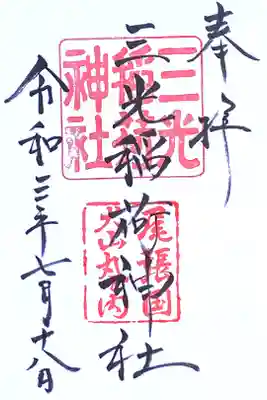 奉拝
三光稲荷神社
令和三年七月十八日
三光
稲荷
神社
尾張国
犬山丸の内